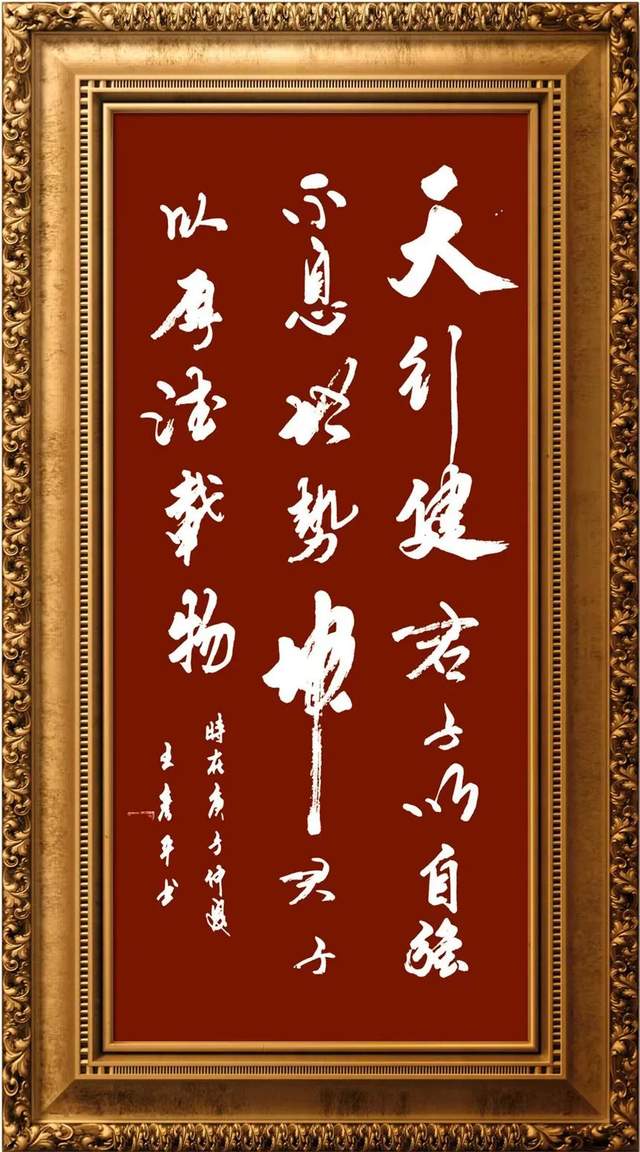 天行健君子以自強
不息地势坤君子
以厚德載物
時在庚子仲夏
王彦平书